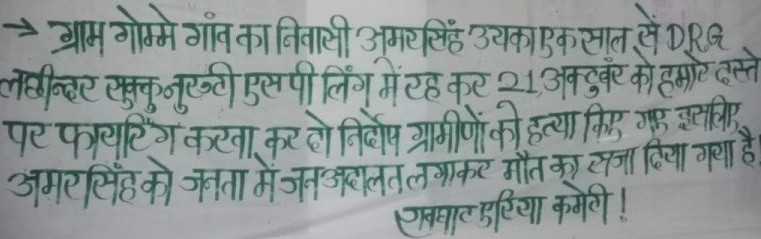 → ग्राम गोम्मे गांव का निवासी अमरसिंह उयका एक साल से DRG
लछीन्दर सुक्कु नुरुटी एस पी लिंग में रह कर 21, अक्टुबर को हमारे दस्ते
पर फायरिंग करवा कर दो निर्दोष ग्रामीणों की हत्या किए गए इसलिए
अमरसिंह को जनता में जन अदालत लगाकर मौत का सजा दिया गया है!
एरिया कमेटी!